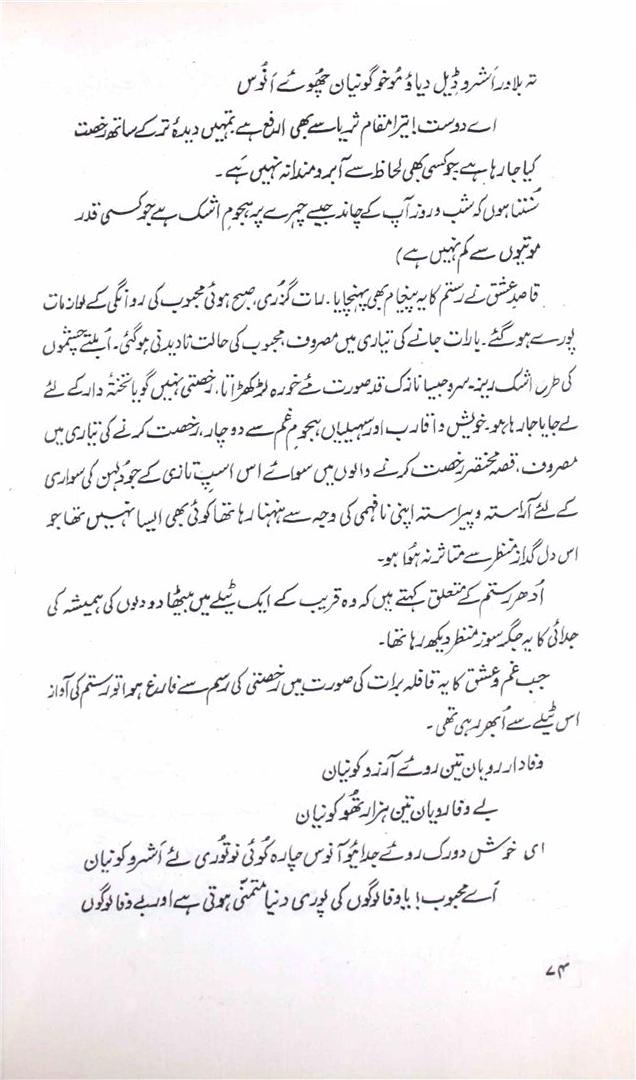 تہ بلا در اَشرو ڈِیل دیاد مُو خو گونیان چھوئے انُوس
اے دوست! تیرا مقام ثریا سے بھی ارفع ہے تمہیں دیدۂ تر کے ساتھ رخصت
کیا جا رہا ہے جو کسی بھی لحاظ سے آبرومندانہ نہیں ہَے۔
سُنتا ہوں کہ شب و روز آپ کے چاند جیسے چہرے پر ہجومِ اشک ہے جو کسی قدر
موتیوں سے کم نہیں ہے)
قاصدِ عشق نے رستم کا یہ پیغام بھی پہنچایا۔ رات گذری، صبح ہوئی محبوب کی روانگی کے لوازمات
پورے ہو گئے۔ بارات جانے کی تیاری میں مصروف، محبوب کی حالت نادیدنی ہو گئی۔ اُبلتے چشموں
کی طرح اشک ریز۔ سرو جیسا نازک قد صورت مئے خورہ لڑکھڑاتا، رخصتی نہیں گویا تختۂ دار کے لئے
لے جایا جا رہا ہو۔ خویش و اقارب اور سہیلیاں ہجومِ غم سے دوچار، رخصت کرنے کی تیاری میں
مصروف، قصہ مختصر رخصت کرنے والوں میں سوائے اس اسپِ تازی کے جو دُلہن کی سواری
کے لئے آراستہ و پیراستہ اپنی نافہمی کی وجہ سے ہنہنا رہا تھا کوئی بھی ایسا نہیں تھا جو
اس دل گداز منظر سے متاثر نہ ہُوا ہو۔
اُدھر رستم کے متعلق کہتے ہیں کہ وہ قریب کے ایک ٹیلے میں بیٹھا دو دِلوں کی ہمیشہ کی
جدائی کا یہ جگر سوز منظر دیکھ رہا تھا۔
جب غم و عشق کا یہ قافلہ برات کی صورت میں رخصتی کی رسم سے فارغ ہوا تو رستم کی آواز
اس ٹیلے سے اُبھر رہی تھی۔
وفادار رویان تین روئے آرزو کونیان
بے وفا رویان تین ہزار تھُو کونیان
ای خوش دورک روئے جدا بیُو آنوس چارہ کوئی نو توری نے اَشرو کونیان
اَے محبوب! باوفا لوگوں کی پوری دنیا متمنّی ہوتی ہے اور بے وفا لوگوں
۷۴